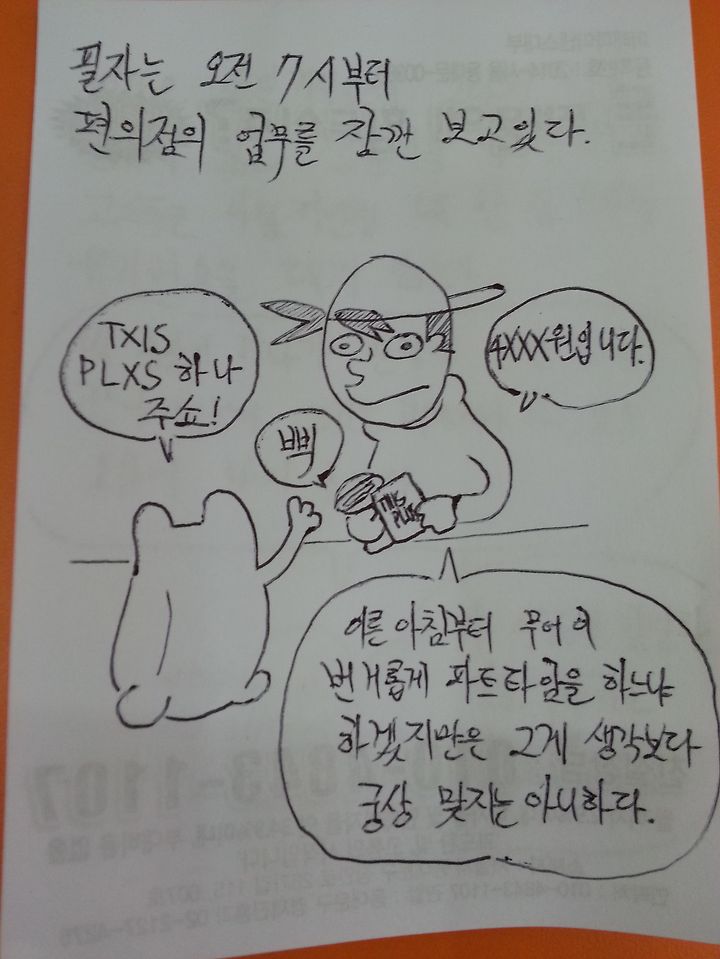 필자는 오전 7시부터
편의점의 업무를 잠깐 보고있다.
TXIS
PLXS 하나
주쇼!
4XXX원입니다.
삑
TXIS
PLXS
이른 아침부터 무어 이
번거롭게 파트타임을 하느냐
하겠지만은 그게 생각보다
궁상 맞지는 아니하다.